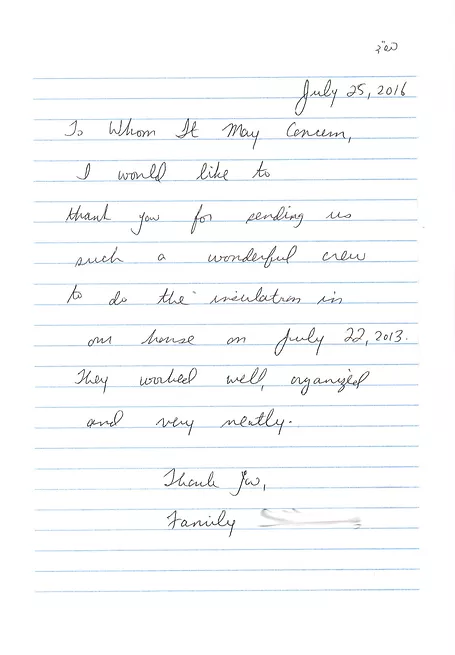 July 25, 2016
To Whom It May Concern,
I would like to
thank you for sending us
such a wonderful crew
to do the insulation in
our house on July 22, 2013.
They worked well, organized
and very neatly.
Thank you,
Family